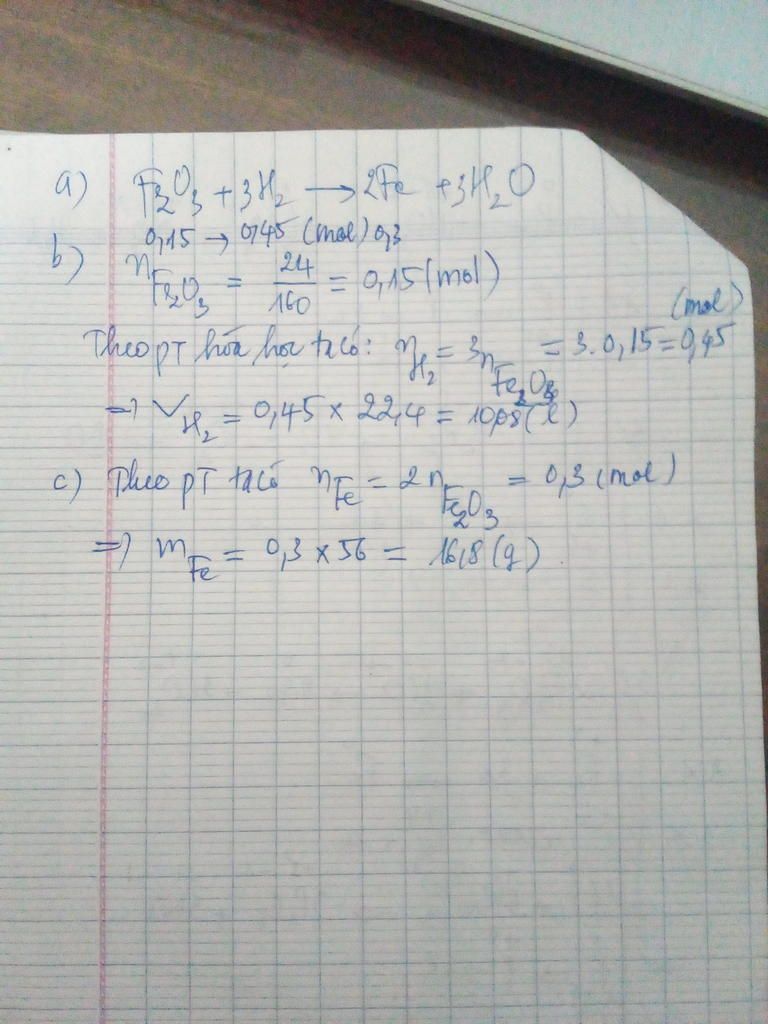 a) Fe2O3 + 3H2 → 2Fe + 3H2O
0,15 → 0,45 (mol) 0,3
b) nFe2O3 = 24/160 = 0,15 (mol)
(mol)
Theo pT hóa học ta có: nH2 = 3nFe2O3 = 3.0,15 = 0,45
=> VH2 = 0,45 x 22,4 = 10,08 (l)
c) Theo pT ta có nFe = 2nFe2O3 = 0,3 (mol)
=> mFe = 0,3 x 56 = 16,8 (g).